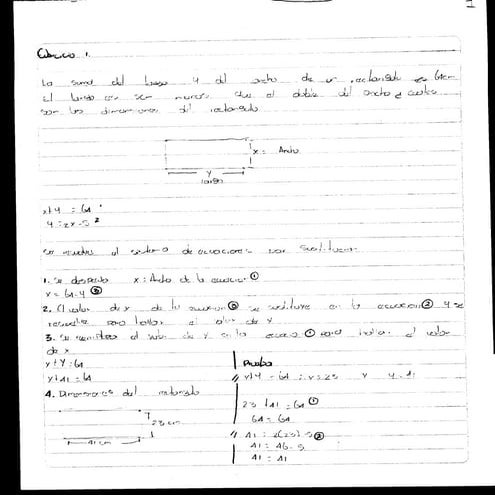 1
La suma del largo y del ancho de un rectangulo es 64cm
El largo es 5cm menos que el doble del ancho ¿ cuales
son las dimensiones del rectangulo
x = Ancho
y
largo
x+y = 64
y = 2x-5 2
se resuelve el sistema de ecuaciones por sustitucion.
1. se despeja x: Ancho de la ecuacion ①
x = 64-y ③
2. El valor de x de la ecuacion ③ se sustituye en la ecuacion ② y se
resuelve para hallar el valor de y
3. se reemplaza el valor de y en la ecuacion ① para hallar el valor
de x
x+y = 64
x+41 = 64
4. Dimensiones del rectangulo
23 cm
41 cm
Prueba
x+y = 64 : x = 23 y y = 41
23 + 41 = 64 ①
64 = 64
41 = 2(23)-5 ②
41 = 46-5
41 = 41